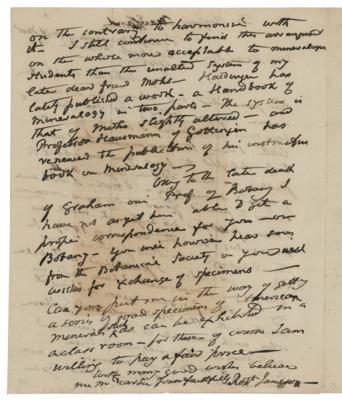 on the contrary to harmonise with
it — I still continue to find this arrangement
on the whole more acceptable to mineralogical
students than the unaltered system of my
late dear friend Mohs. Haidinger has
lately published a work — a Handbook of
Mineralogy in two parts — The system is
that of Mohs slightly altered — and
Professor Hausmann of Gottingen has
renewed the publication of his instructive
book on Mineralogy —
Owing to the late death
of Graham our Prof. of Botany I
have not as yet been able to get a
proper correspondence for you
Botany — you will however hear soon
from the Botanical Society on your
wishes for exchange of specimens —
Can you put me in the way of getting
a series of good specimens of American
minerals that can be exhibited in a
class room — for these of course I am
willing to pay a fair price —
With many good wishes believe
me My dear Sir yours faithfully Robt Jameson